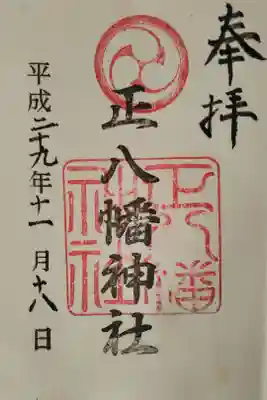 奉拝
正八幡神社
平成二十九年十一月十八日